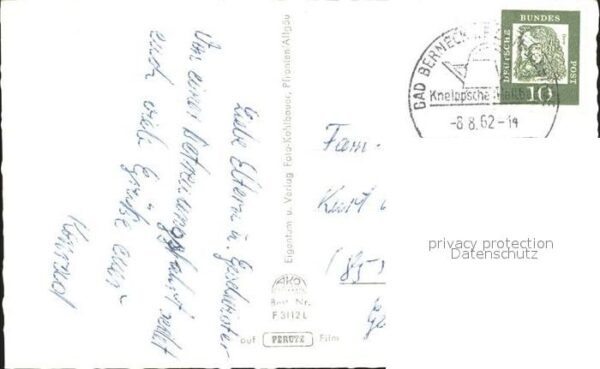 Liebe Eltern u. Geschwister
Von einer Betreuungsfahrt sendet
euch viele Grüße euer
Konrad
Eigentum u. Verlag Foto-Kohlbauer, Pfronten/Allgäu
AKO
Best. Nr.
F 3112 L
auf PERUTZ Film
BAD BERNECK
Kneippsche
-8.8.62-14
DEUTSCHE BUNDES POST
10
Fam.
Kurt
privacy protection
Datenschutz